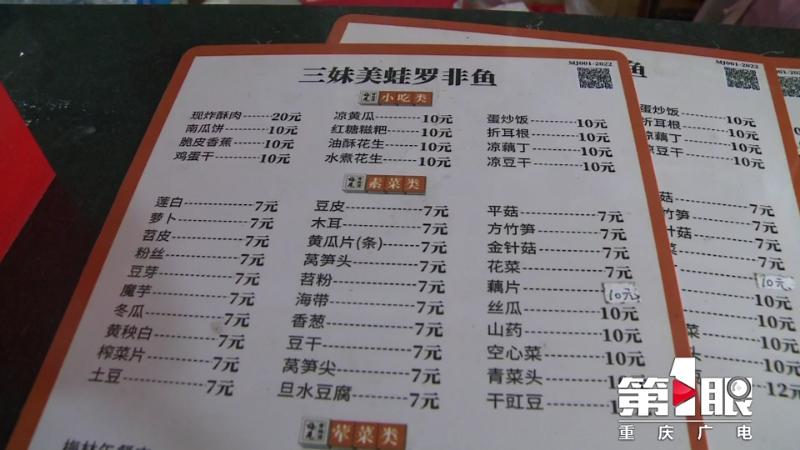 三妹美蛙罗非鱼
MJ001-2022
小吃类
现炸酥肉 20元 凉黄瓜 10元 蛋炒饭 10元
南瓜饼 10元 红糖糍粑 10元 折耳根 10元
脆皮香蕉 10元 油酥花生 10元 凉藕丁 10元
鸡蛋干 10元 水煮花生 10元 凉豆干 10元
素菜类
莲白 7元 豆皮 7元 平菇 7元
萝卜 7元 木耳 7元 方竹笋 7元
苕皮 7元 黄瓜片(条) 7元 金针菇 7元
粉丝 7元 莴笋头 7元 花菜 7元
豆芽 7元 苕粉 7元 藕片 10元
魔芋 7元 海带 7元 丝瓜 10元
冬瓜 7元 香葱 7元 山药 10元
黄秧白 7元 豆干 7元 空心菜 10元
榨菜片 7元 莴笋尖 7元 青菜头 10元
土豆 7元 旦水豆腐 7元 干豇豆 10元
荤菜类
鱼
MJ001-2022
蛋炒饭 10元
折耳根 10元
凉藕丁 10元
凉豆干 10元
菇 7元
竹笋 7元
针菇 7元
菜 7元
10元
10元
10元
10元
12元
第1眼
重庆广电